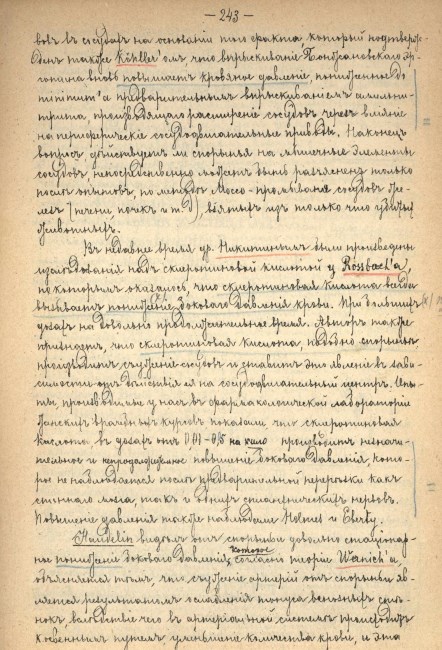 — 243 —
вовъ въ сосудахъ на основании того факта, который подтверж-
денъ также Köhler'омъ что впрыскивание Бонжановскаго эр-
готина вновь повышаетъ кровяное давление, пониженное до
minimum'а предварительнымъ впрыскиваниемъ амилъни-
трита, производящаго расширение сосудовъ чрезъ влияние
на периферические сосудодвигательные приборы. Наконецъ
вопросъ действуетъ ли спорынья на мышечные элементы
сосудовъ, непосредственно можетъ быть разъясненъ только
после опытовъ, по методу Моссо - промывания сосудовъ
(печени почекъ и т. д), взятыхъ изъ только что убитыхъ
животныхъ.
Въ недавнее время др. Никитинымъ были произведены
изследования надъ склеротиновой кислотой у Rossbach'а,
по которымъ оказалось, что склеротиновая кислота всегда
вызываетъ понижение боковаго давления крови. При большихъ
дозахъ на довольно продолжительное время. Авторъ также
признаетъ, что склеротиновая кислота, подобно спорынье
производитъ сужение сосудовъ и ставитъ это явление въ зави-
симость отъ действия ея на сосудодвигательный центръ. Опы-
ты, производимые у насъ въ фармакологической лаборатории
Женскихъ врачебныхъ курсовъ показали, что склеротиновая
кислота въ дозахъ отъ на кило производитъ незначи-
тельное и непродолжительное повышение боковаго давления, кото-
рое не наблюдается после предварительной перерезки какъ
спиннаго мозга, такъ и обоихъ спланхническихъ нервовъ.
Повышение давления также наблюдали Holmes и Eberty.
Haudelin виделъ отъ спорыньи довольно стационар-
ное понижение боковаго давления, которое согласно теории Wernich'а
объясняется темъ, что сужение артерий отъ спорыньи яв-
ляется результатомъ ослабления тонуса венозныхъ сте-
нокъ, вследствие чего въ артериальной системе происходитъ
косвеннымъ путемъ уменьшение количества крови, и эта